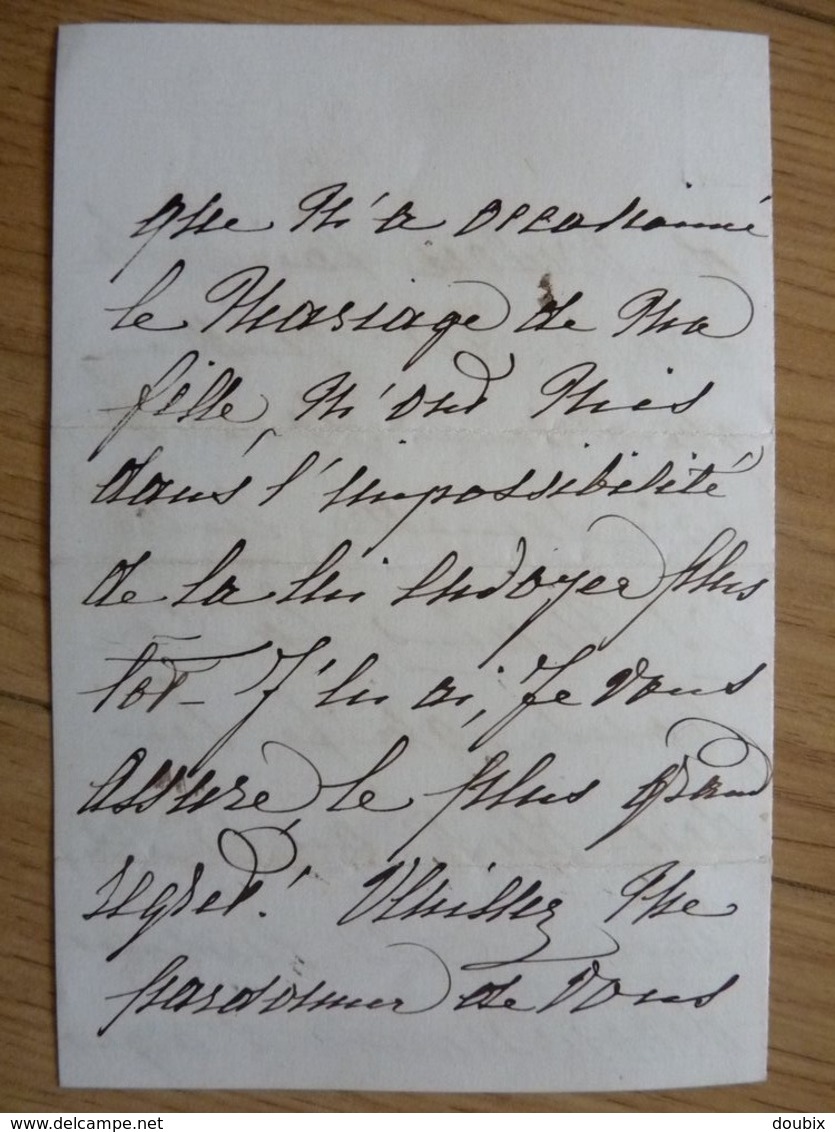 que m'a occasionné
le Mariage de Ma
fille, m'ont mis
dans l'impossibilité
de la lui envoyer plus
tôt - J'en ai, je vous
assure, le plus grand
regret! Veuillez me
pardonner de vous
© delcampe.net
doubix